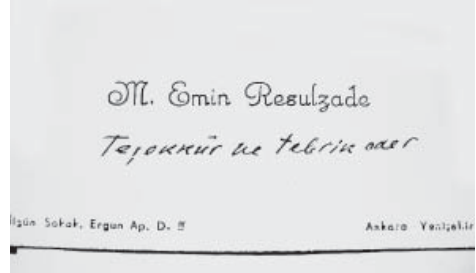 M. Emin Resulzade
Teşekkür ve tebrik eder
Sokak, Ergun Ap. D.
Ankara Yenişehir